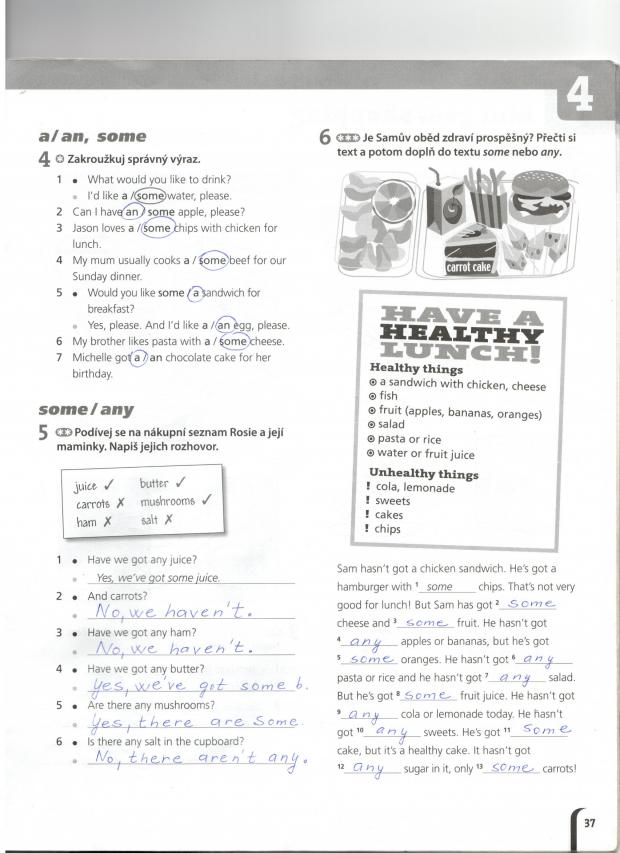 4
a/an, some
4 Zakroužkuj správný výraz.
1 • What would you like to drink?
• I'd like a / some water, please.
2 Can I have an / some apple, please?
3 Jason loves a / some chips with chicken for
lunch.
4 My mum usually cooks a / some beef for our
Sunday dinner.
5 • Would you like some / a sandwich for
breakfast?
• Yes, please. And I'd like a / an egg, please.
6 My brother likes pasta with a / some cheese.
7 Michelle got a / an chocolate cake for her
birthday.
some/any
5 Podívej se na nákupní seznam Rosie a její
maminky. Napiš jejich rozhovor.
juice ✓ butter ✓
carrots ✗ mushrooms ✓
ham ✗ salt ✗
1 • Have we got any juice?
• Yes, we've got some juice.
2 • And carrots?
• No, we haven't.
3 • Have we got any ham?
• No, we haven't.
4 • Have we got any butter?
• Yes, we've got some b.
5 • Are there any mushrooms?
• Yes, there are some.
6 • Is there any salt in the cupboard?
• No, there aren't any.
6 Je Samův oběd zdraví prospěšný? Přečti si
text a potom doplň do textu some nebo any.
carrot cake
HAVE A
HEALTHY
LUNCH!
Healthy things
a sandwich with chicken, cheese
fish
fruit (apples, bananas, oranges)
salad
pasta or rice
water or fruit juice
Unhealthy things
! cola, lemonade
! sweets
! cakes
! chips
Sam hasn't got a chicken sandwich. He's got a
hamburger with 1 some chips. That's not very
good for lunch! But Sam has got 2 some
cheese and 3 some fruit. He hasn't got
4 any apples or bananas, but he's got
5 some oranges. He hasn't got 6 any
pasta or rice and he hasn't got 7 any salad.
But he's got 8 some fruit juice. He hasn't got
9 any cola or lemonade today. He hasn't
got 10 any sweets. He's got 11 some
cake, but it's a healthy cake. It hasn't got
12 any sugar in it, only 13 some carrots!
37